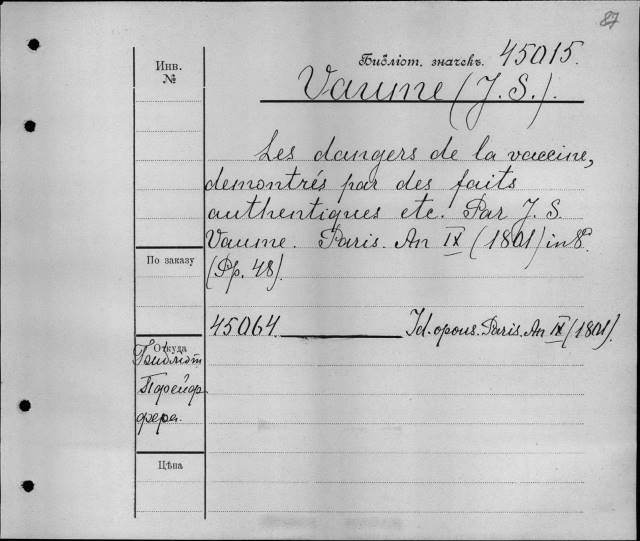 87
Инв.
№
Библіот. значекъ. 45015.
Vaume (J. S.).
Les dangers de la vaccine,
demontrés par des faits
authentiques etc. Par J. S.
Vaume. Paris. An IX (1801) in 8°.
(Pp. 48).
По заказу
45064. Id. opous. Paris. An IX (1801).
Откуда
Библіот
Пфейф
фера.
Цѣна